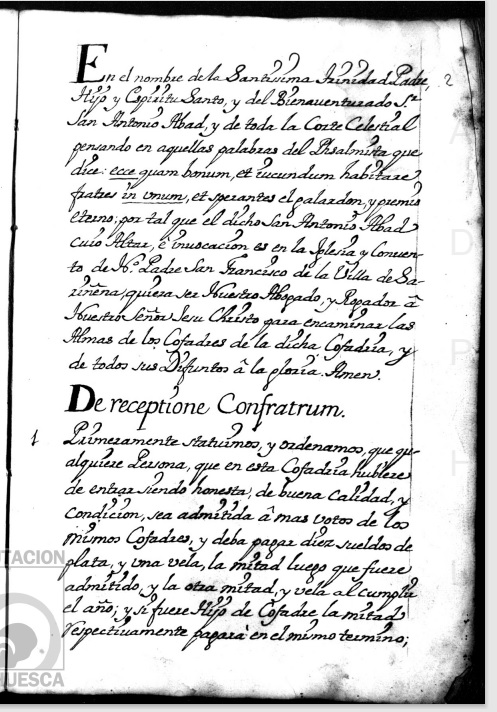 2
En el nombre de la Santissima Trinidad Padre,
Hijo y Espiritu Santo, y del Bienauenturado Sr.
San Antonio Abad, y de toda la Corte Celestial
pensando en aquellas palabras del Phsalmista que
dice: ecce quam bonum, et iucundum habitare
fratres in vnum, et sperantes el galardon, y premio
eterno; por tal que el dicho San Antonio Abad
cuio Altar, è inuocacion es en la Iglesia y Conuen-
to de N.o Padre San Francisco de la Villa de Sa-
riñena, quiera ser Nuestro Abogado, y Rogador â
Nuestro Señor Jesu Christo para encaminar las
Almas de los Cofadres de la dicha Cofadria, y
de todos sus Difuntos â la gloria. Amen.
De receptione Confratrum.
1 Primeramente statuimos, y ordenamos, que qu-
alquiere Persona, que en esta Cofadria hubiere
de entrar siendo honesta, de buena calidad, y
condicion, sea admitida â mas votos de los
mismos Cofadres, y deba pagar diez sueldos de
plata, y vna vela, la mitad luego que fuere
admitido, y la otra mitad, y vela al cumplir
el año; y si fuere Hijo de Cofadre la mitad
respectiuamente pagarà en el mismo termino;
TACION
HUESCA